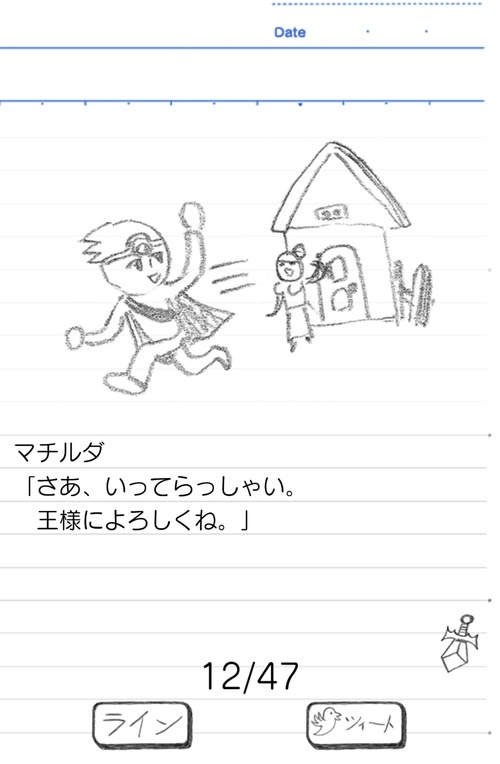 Date
マチルダ
「さあ、いってらっしゃい。
王様によろしくね。」
12/47
ライン
ツィート